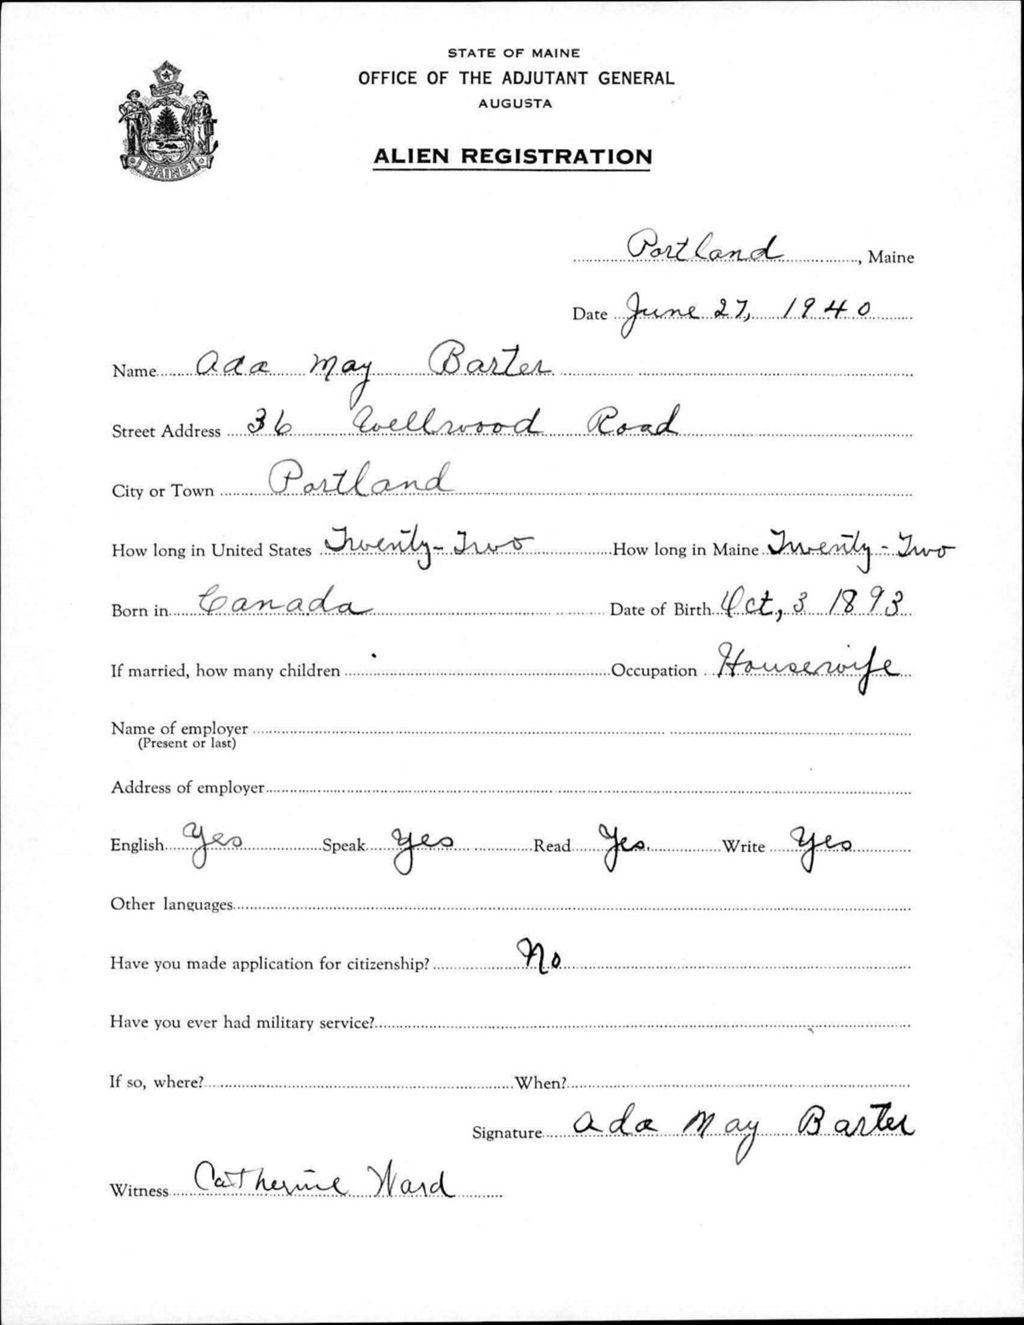 STATE OF MAINE
OFFICE OF THE ADJUTANT GENERAL
AUGUSTA
ALIEN REGISTRATION
MAINE
Portland, Maine
Date June 27, 1940
Name Ada May Barter
Street Address 36 Wellwood Road
City or Town Portland
How long in United States Twenty-Two How long in Maine Twenty-Two
Born in Canada Date of Birth Oct, 3 1893
If married, how many children Occupation Housewife
Name of employer
(Present or last)
Address of employer
English Yes Speak Yes Read Yes. Write Yes
Other languages
Have you made application for citizenship? No
Have you ever had military service?
If so, where? When?
Signature Ada May Barter
Witness Catherine Ward